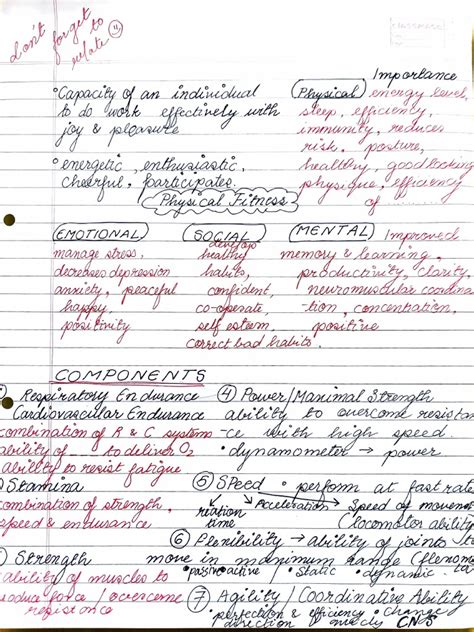 Don't forget to relate 4
Importance
• Capacity of an individual
to do work effectively with
joy & pleasure
• energetic, enthusiastic,
cheerful, participates.
Physical energy level,
sleep, efficiency,
immunity, reduces
risk, posture,
healthy, good looking
physique, efficiency
of ......
Physical Fitness
EMOTIONAL
manage stress,
decreases depression
anxiety, peaceful
happy,
positivity
SOCIAL
develop
healthy
habits,
confident,
co-operate
self esteem,
correct bad habits.
MENTAL Improved
memory & learning,
productivity, clarity,
neuromuscular coordina
-tion, concentration,
positive
COMPONENTS
Respiratory Endurance
Cardiovascular Endurance
combination of R & C systems
ability of to deliver O2
ability to resist fatigue
Stamina
combination of strength,
speed & endurance
Strength
ability of muscles to
produce force / overcome
resistance
④ Power/Maximal Strength
ability to overcome resistan
-ce with high speed.
• dynamometer → power
⑤ Speed • perform at fast rate
reation time Acceleration Speed of movemen
(locomotor ability
⑥ Flexibility → ability of joints to
move in maximum range
• passive active / • Static • dynamic
⑦ Agility / Coordinative Ability
• perfection & efficiency • change
direction CNS